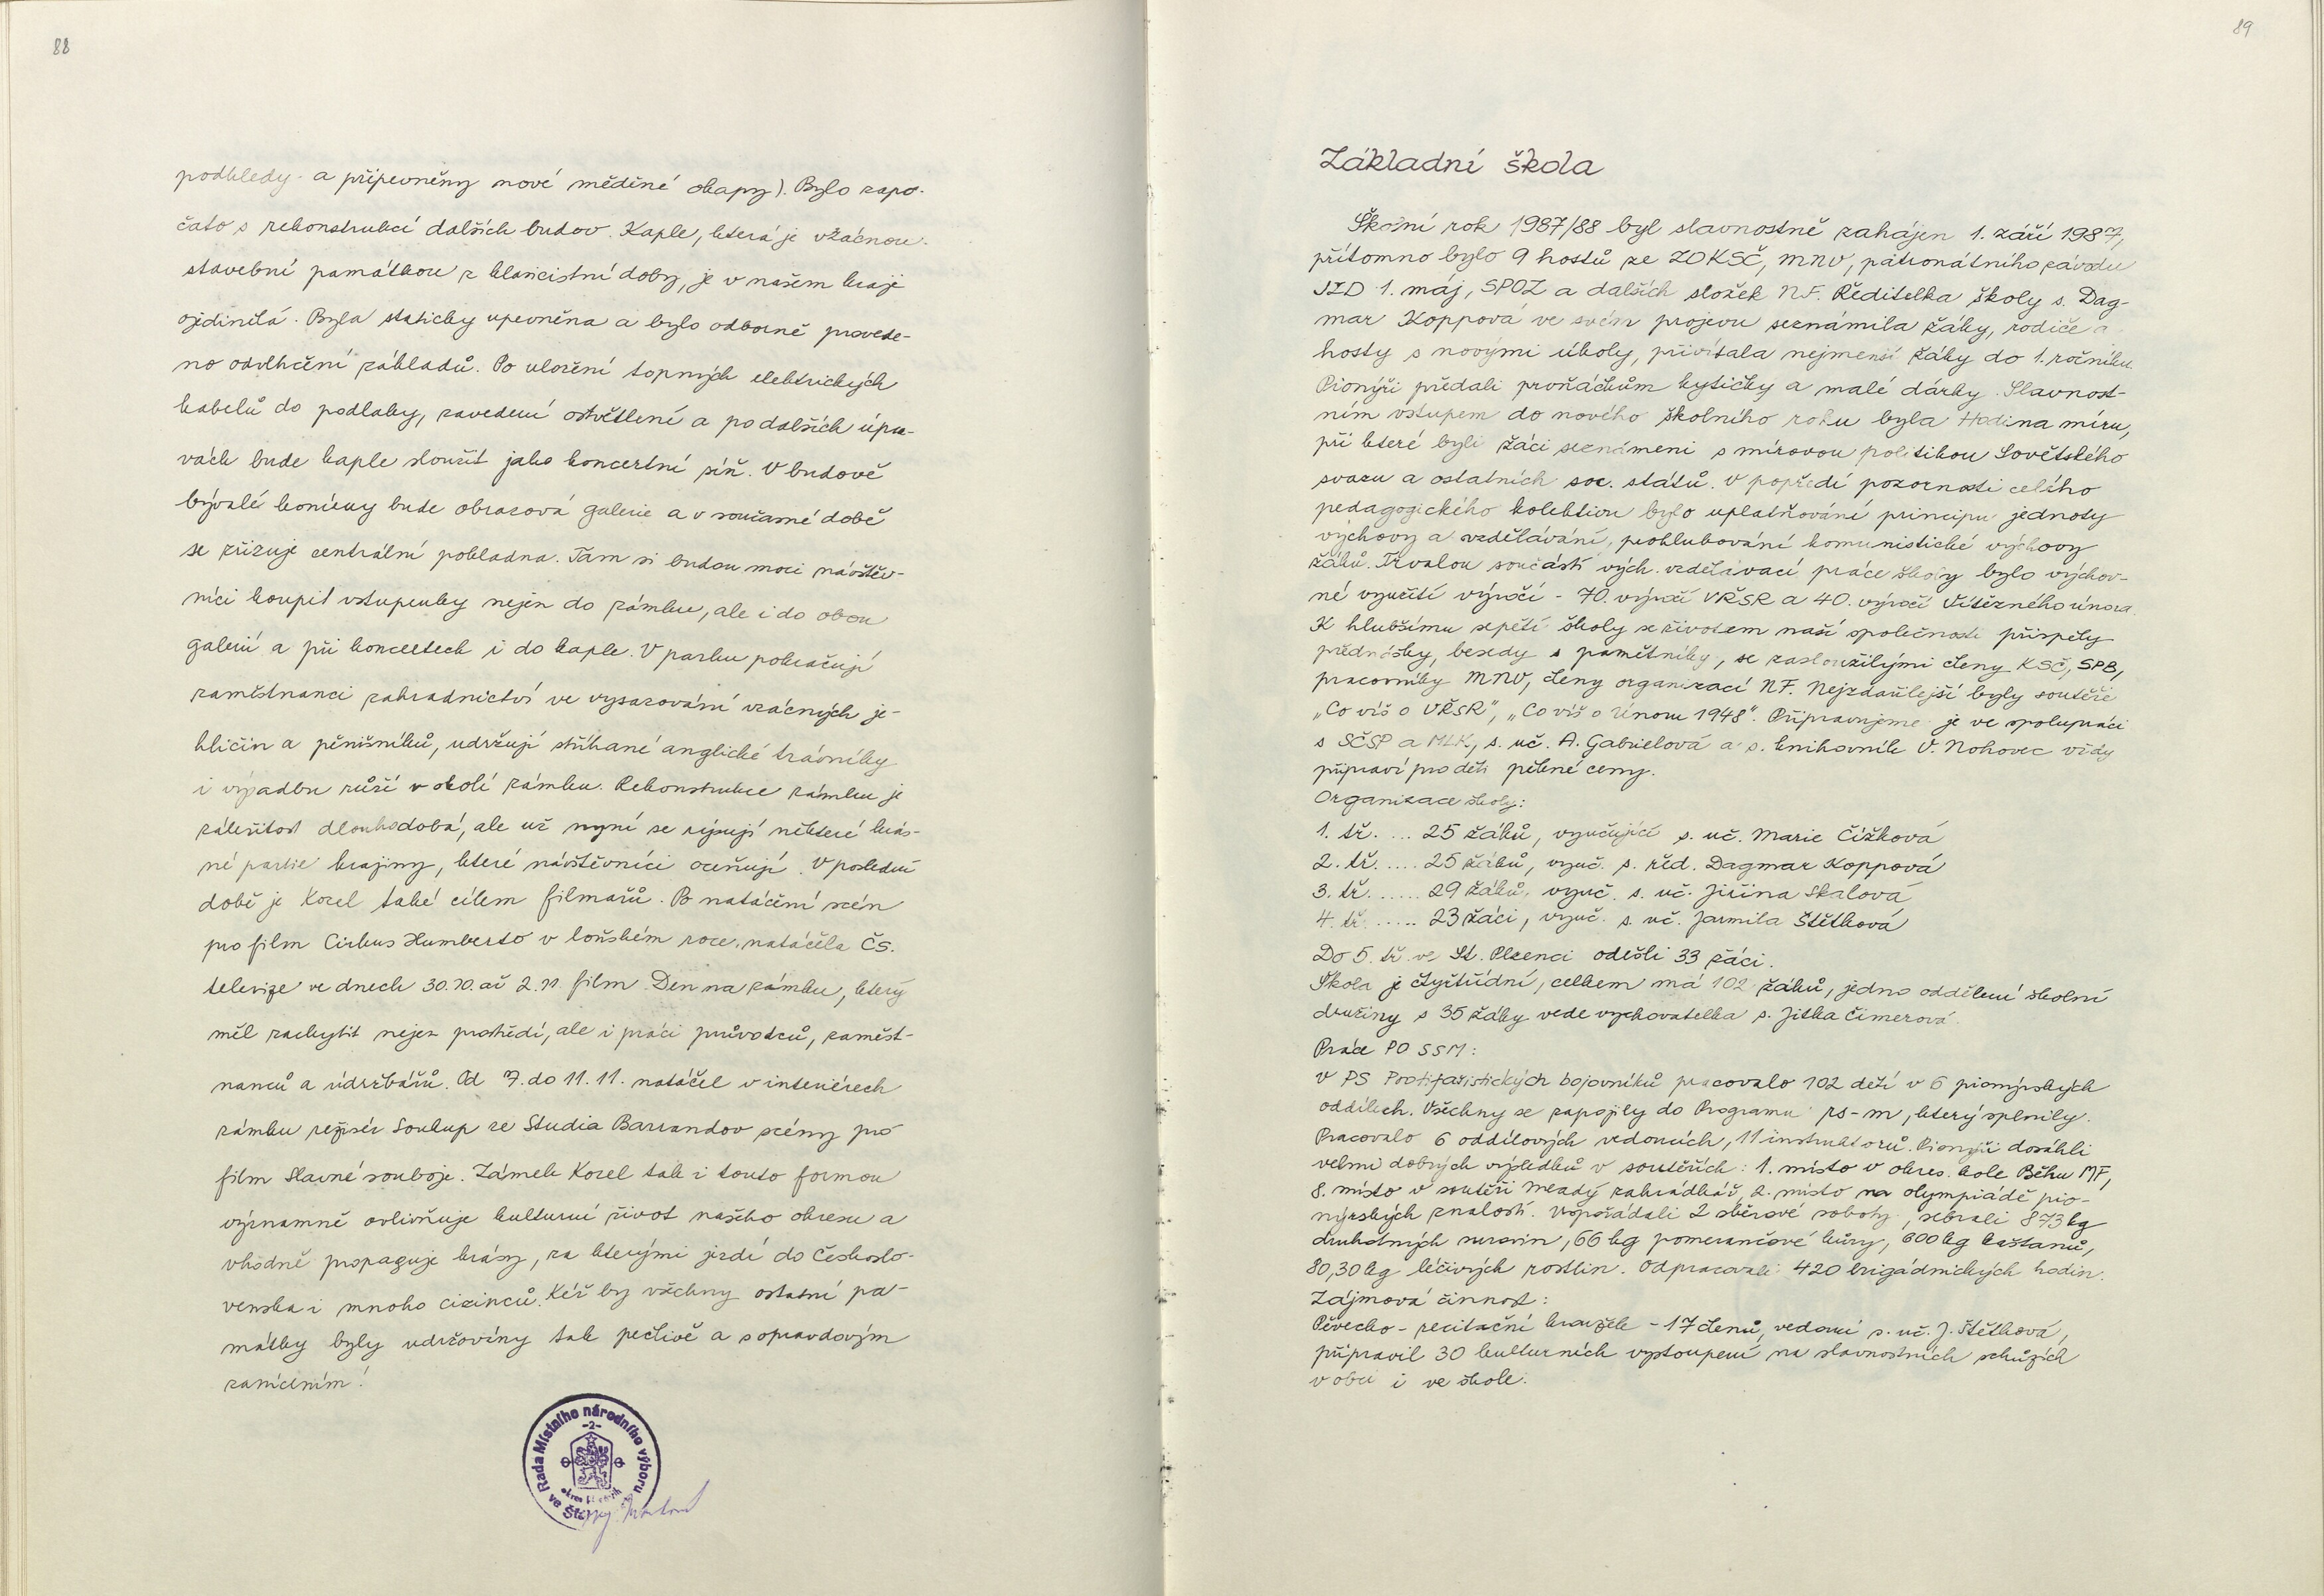 88
podhledy a připevněny nové měděné okapy). Bylo zapo-
čato s rekonstrukcí dalších budov. Kaple, která je vzácnou
stavební památkou z klasicistní doby, je v našem kraji
ojedinělá. Byla staticky upevněna a bylo odborně provede-
no odvlhčení základů. Po uložení topných elektrických
kabelů do podlahy, zavedení osvětlení a po dalších úpra-
vách bude kaple sloužit jako koncertní síň. V budově
bývalé konírny bude obrazová galerie a v současné době
se zřizuje centrální pokladna. Tam si budou moci návštěv-
níci koupit vstupenky nejen do zámku, ale i do obou
galerií a při koncertech i do kaple. V parku pokračují
zaměstnanci zahradnictví ve vysazování vzácných je-
hličin a pěnišníků, udržují stříhané anglické trávníky
i výsadbu růží v okolí zámku. Rekonstrukce zámku je
záležitost dlouhodobá, ale už nyní se rýsují některé krás-
né partie krajiny, které návštěvníci oceňují. V poslední
době je Kozel také cílem filmařů. Po natáčení scén
pro film Cirkus Humberto v loňském roce, natáčela Čs.
televize ve dnech 30.10. až 2.11. film Den na zámku, který
měl zachytit nejen prostředí, ale i práci průvodců, zaměst-
nanců a údržbářů. Od 7. do 11.11. natáčel v interiérech
zámku režisér Soukup ze Studia Barrandov scény pro
film Slavné souboje. Zámek Kozel tak i touto formou
významně ovlivňuje kulturní život našeho okresu a
vhodně propaguje krásy, za kterými jezdí do Českoslo-
venska i mnoho cizinců. Kéž by všechny ostatní pa-
mátky byly udržovány tak pečlivě a s opravdovým
zanícením!
Rada Místního národního výboru
-2-
ve
89
Základní škola
Školní rok 1987/88 byl slavnostně zahájen 1. září 1987,
přítomno bylo 9 hostů ze ZO KSČ, MNV, patronátního závodu
JZD 1. máj, SPOZ a dalších složek NF. Ředitelka školy s. Dag-
mar Koppová ve svém projevu seznámila žáky, rodiče a
hosty s novými úkoly, přivítala nejmenší žáky do 1. ročníku.
Pionýři předali prvňáčkům kytičky a malé dárky. Slavnost-
ním vstupem do nového školního roku byla Hodina míru,
při které byli žáci seznámeni s mírovou politikou Sovětského
svazu a ostatních soc. států. V popředí pozornosti celého
pedagogického kolektivu bylo uplatňování principu jednoty
výchovy a vzdělávání, prohlubování komunistické výchovy
žáků. Trvalou součástí vých. vzdělávací práce školy bylo výchov-
né využití výročí - 70. výročí VŘSR a 40. výročí Vítězného února.
K hlubšímu sepětí školy se životem naší společnosti přispěly
přednášky, besedy s pamětníky, se zasloužilými členy KSČ, SPB,
pracovníky MNV, členy organizací NF. Nejzdařilejší byly soutěže
„Co víš o VŘSR", „Co víš o Únoru 1948". Připravujeme je ve spolupráci
s SČSP a MLK, s. uč. A. Gabrielová a s. knihovník V. Nohovec vždy
připraví pro děti pěkné ceny.
Organizace školy:
1. tř. ... 25 žáků, vyučující s. uč. Marie Čížková
2. tř. .... 25 žáků, vyuč. s. řed. Dagmar Koppová
3. tř. ..... 29 žáků, vyuč. s. uč. Jiřina Skalová
4. tř. ..... 23 žáci, vyuč. s. uč. Jarmila Štětková
Do 5. tř. ve St. Plzenci odešli 33 žáci.
Škola je čtyřtřídní, celkem má 102 žáků, jedno oddělení školní
družiny s 35 žáky vede vychovatelka s. Jitka Čimerová.
Práce PO SSM:
V PS Protifašistických bojovníků pracovalo 102 dětí v 6 pionýrských
oddílech. Všechny se zapojily do Programu rs-m, který splnily.
Pracovalo 6 oddílových vedoucích, 11 instruktorů. Pionýři dosáhli
velmi dobrých výsledků v soutěžích: 1. místo v okres. kole Běhu MF,
8. místo v soutěži Mladý zahrádkář, 2. místo na olympiádě pio-
nýrských znalostí. Uspořádali 2 sběrové soboty, sebrali 873 kg
druhotných surovin, 66 kg pomerančové kůry, 600 kg kaštanů,
80,30 kg léčivých rostlin. Odpracovali 420 brigádnických hodin.
Zájmová činnost:
Pěvecko-recitační kroužek - 17 členů, vedoucí s. uč. J. Štětková,
připravil 30 kulturních vystoupení na slavnostních schůzích
v obci i ve škole.